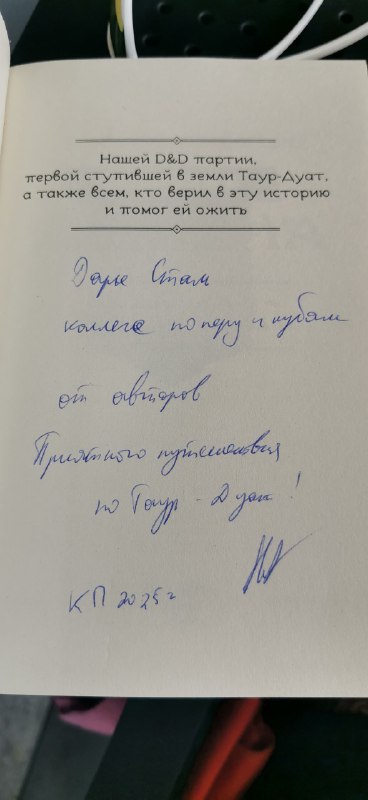 Нашей D&D партии,
первой ступившей в земли Таур-Дуат,
а также всем, кто верил в эту историю
и помог ей ожить
Дарье Стам
коллеге по перу и кубам
от авторов
Приятного путешествия
по Таур-Дуат!
КП 2025г